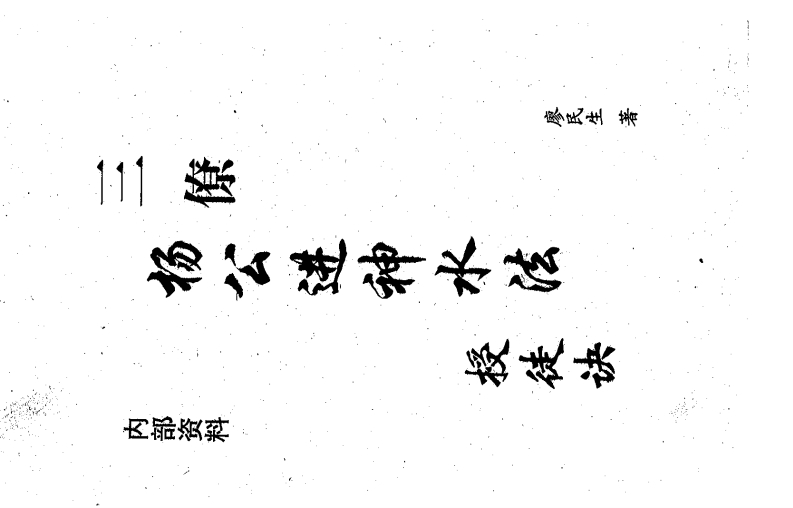 廖民生 著
三僚
杨公进神水法
授徒诀
内部资料